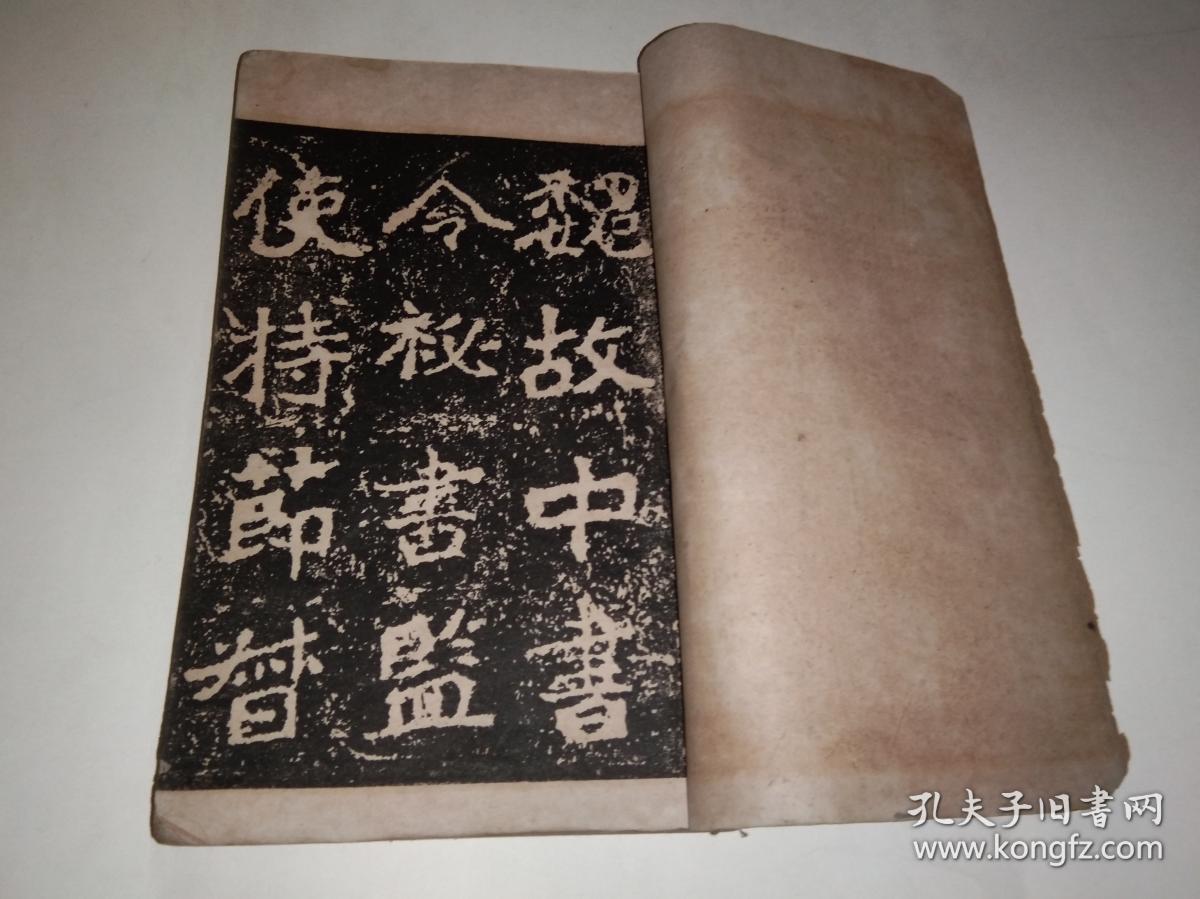 魏故中書
令秘書監
使持節督
孔夫子旧书网
www.kongfz.com